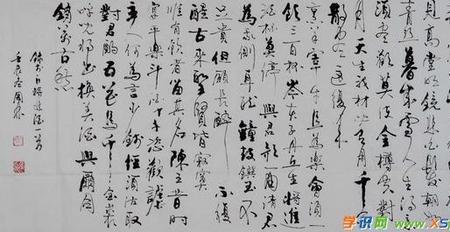 見高堂明鏡悲白髮朝
青絲暮成雪人生得
須盡歡莫使金樽空對
月天生我材必有用千金
散盡還復來
烹羊宰牛且為樂會須一
飲三百杯岑夫子丹丘生將進
酒杯莫停與君歌一曲請君
為我側耳聽鐘鼓饌玉不
足貴但願長醉不復
醒古來聖賢皆寂寞
惟有飲者留其名陳王昔時
宴平樂斗酒十千恣歡謔
主人何為言少錢徑須沽取
對君酌五花馬千金裘
呼兒將出換美酒與爾同
銷萬古愁
李白將進酒一首
学识网
www.xs